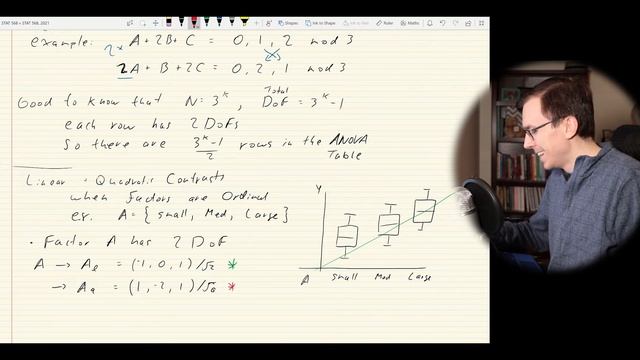 STAT 568 > STAT 568, 2021
Shapes
Ink to Shape
Ink to Text
example: A+2B+C = 0, 1, 2 mod 3
2x
2A + B + 2C = 0, 2, 1 mod 3
Good to know that N = 3^k, Total DoF = 3^k - 1
each row has 2 DoFs
So there are (3^k - 1)/2 rows in the ANOVA Table
Linear + Quadratic Contrasts
when Factors are Ordinal
ex. A = { small, Med, Large }
• Factor A has 2 DoF
A → A_l = (-1, 0, 1)/√2 *
→ A_q = (1, -2, 1)/√6 *
Y
A small Med Large